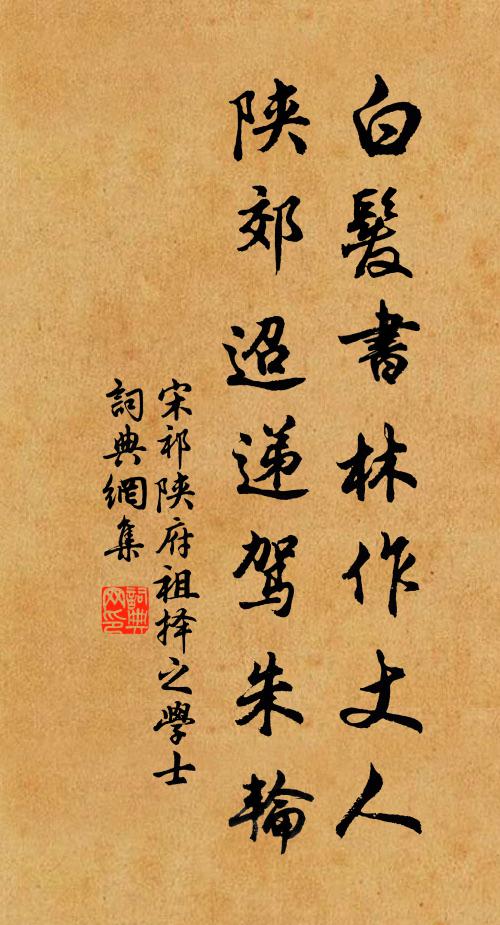 白髮書林作丈人
陝郊迢递駕朱輪
宋祁陝府祖择之學士
詞典網集
詞典网印